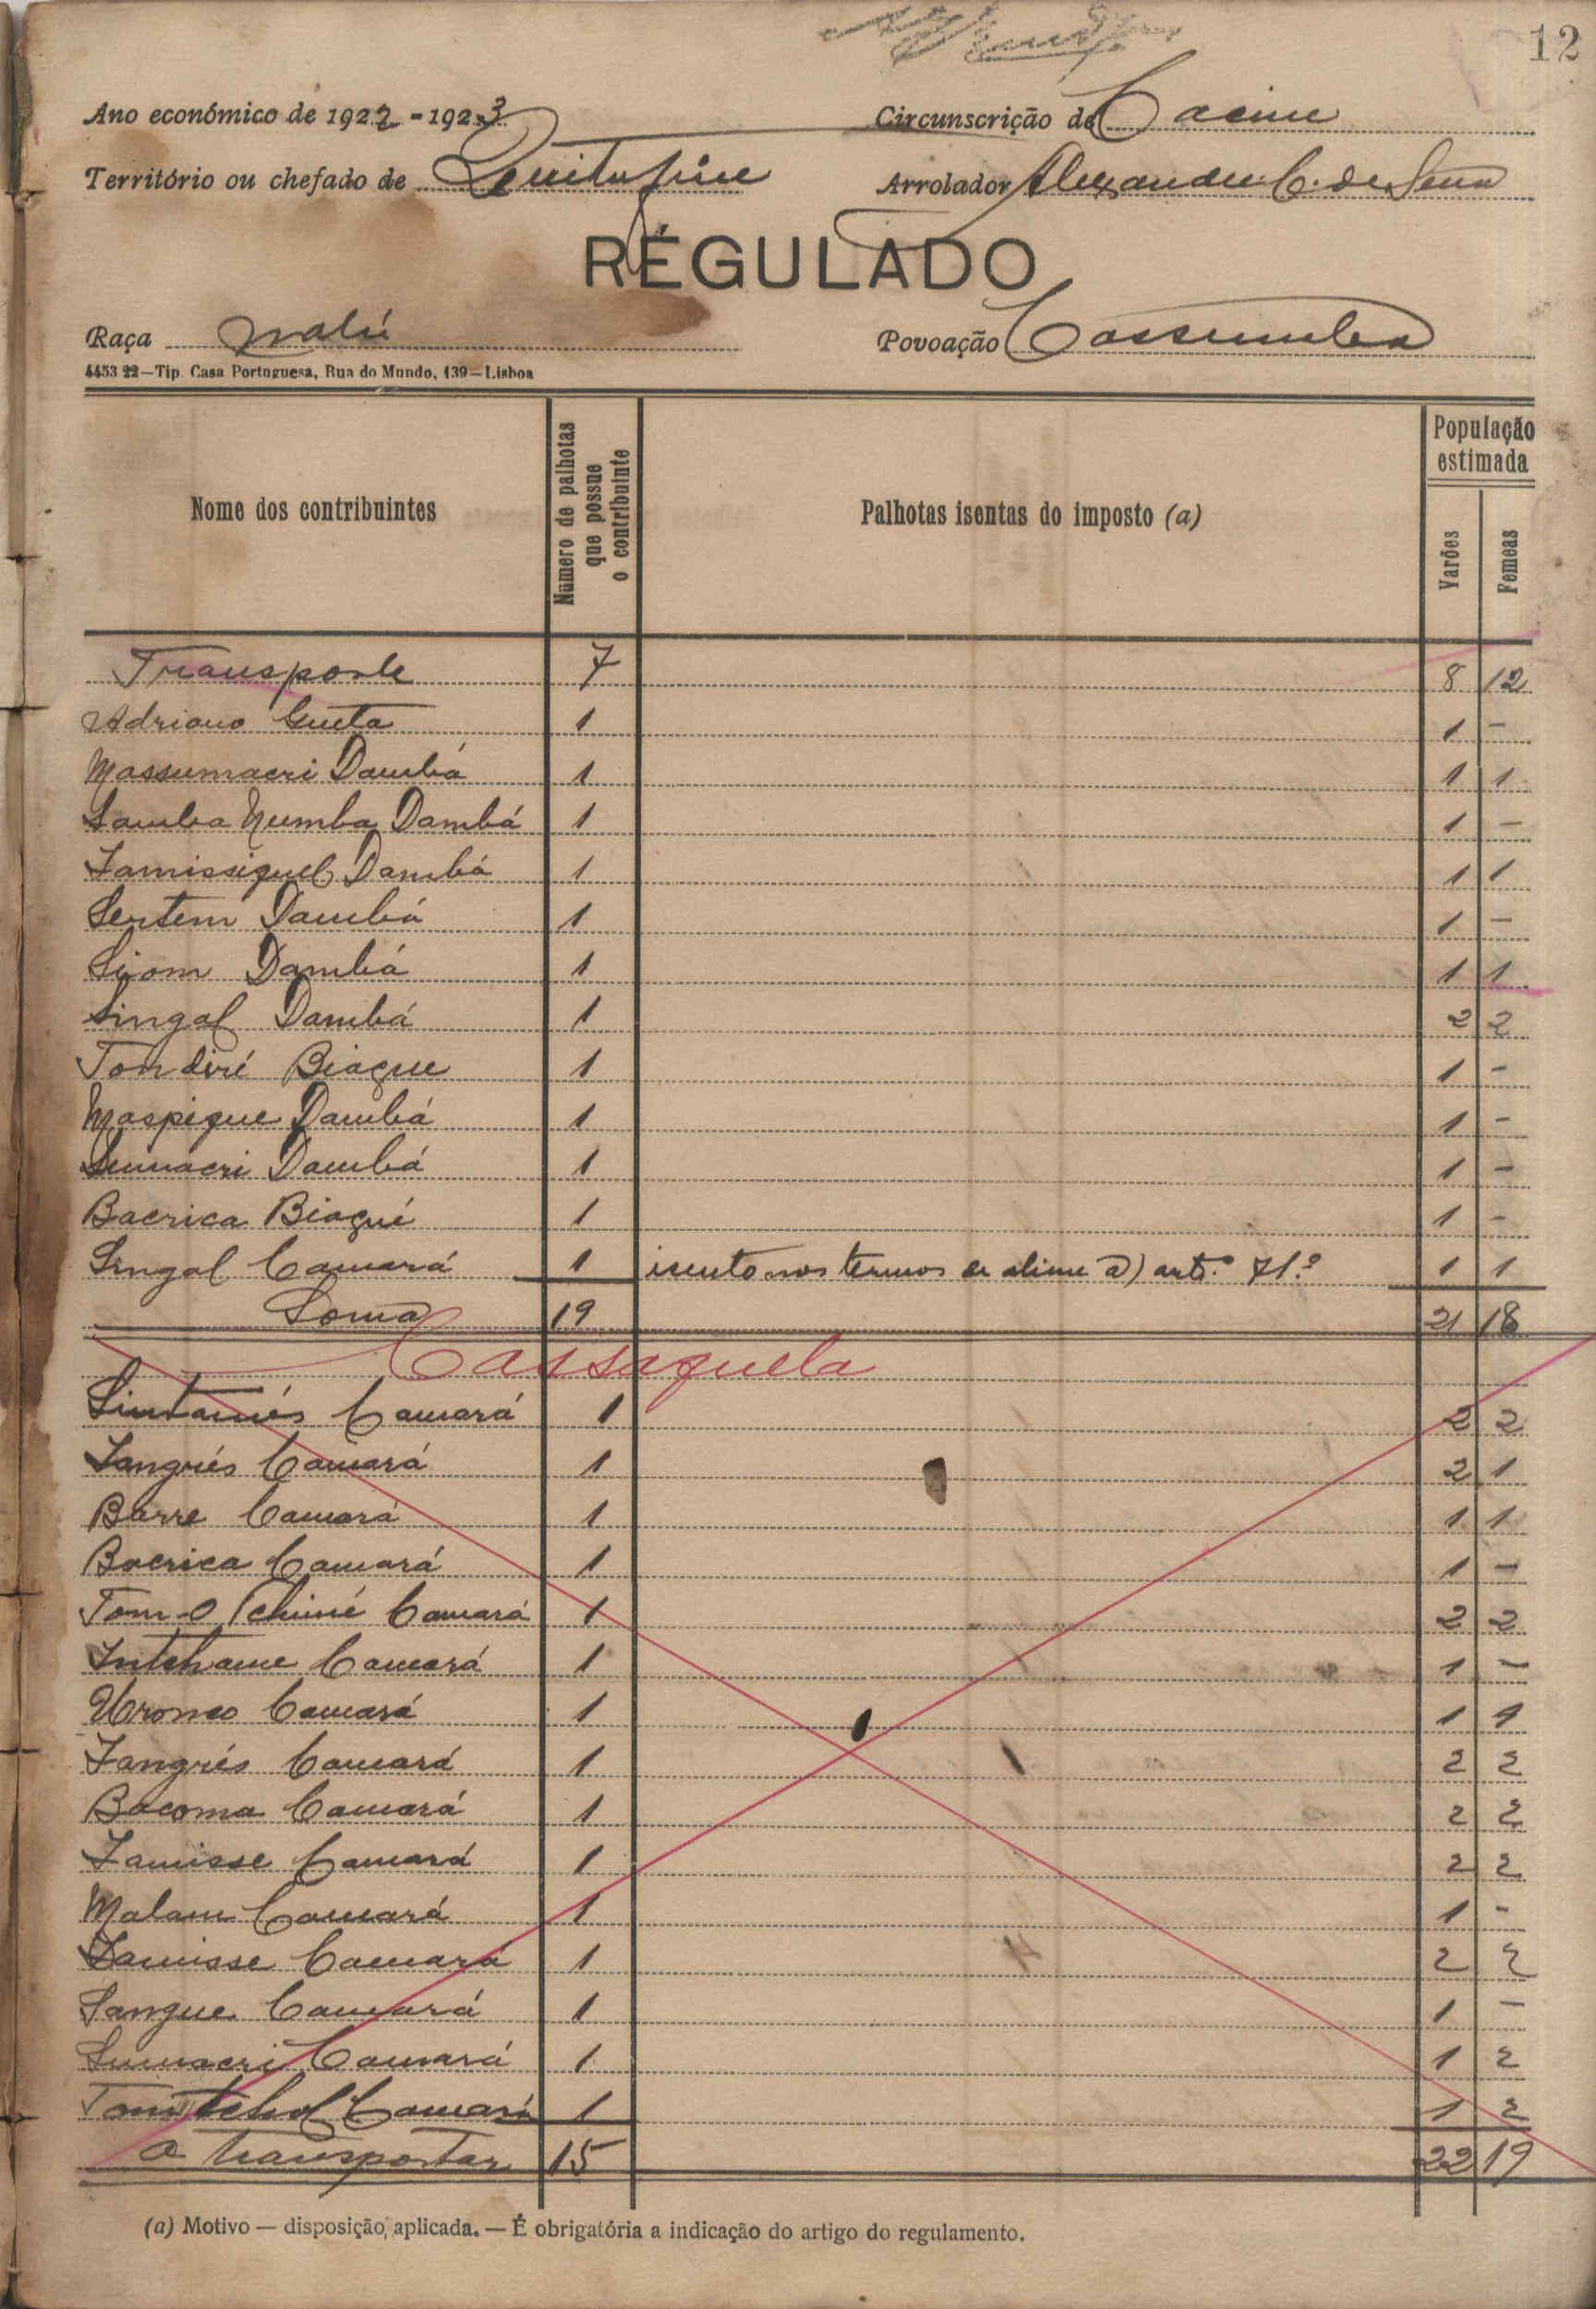 12
Ano económico de 1922-1923 Circunscrição de Cacine
Território ou chefado de Quitafine Arrolador Alexandre C. de Sena
REGULADO
Raça Nalú Povoação Cassumba
4453 22—Tip. Casa Portuguesa, Rua do Mundo, 139—Lisboa
Nome dos contribuintes Número de palhotas que possue o contribuinte Palhotas isentas do imposto (a) População estimada Varões Femeas
Transporte 7 8 12
Adriano Gueta 1 1 -
Massumacri Dambá 1 1 1
Samba Numba Dambá 1 1 -
Lamissiguel Dambá 1 1 1
Sentem Dambá 1 1 -
Siom Dambá 1 1 1
Singal Dambá 1 2 2
Tondiré Biague 1 1 -
Maspique Dambá 1 1 -
Sumacri Dambá 1 1 -
Bacrica Biagué 1 1 -
Singal Camará 1 isento nos termos da aline a) artº. 71.º 1 1
Soma 19 21 18
Cassaquela
Sintamés Camará 1 2 2
Langriés Camará 1 2 1
Barre Camará 1 1 1
Bacrica Camará 1 1 -
Tom-O Camará 1 2 2
Intchame Camará 1 1 -
Camará 1 1 1
Langriés Camará 1 2 2
Bacoma Camará 1 2 2
Lamisse Camará 1 2 2
Malam Camará 1 1 -
Lamisse Camará 1 2 2
Sangue Camará 1 1 -
Sumacri Camará 1 1 2
Tomtchol Camará 1 1 2
A transportar 15 22 19
(a) Motivo — disposição, aplicada. — É obrigatória a indicação do artigo do regulamento.